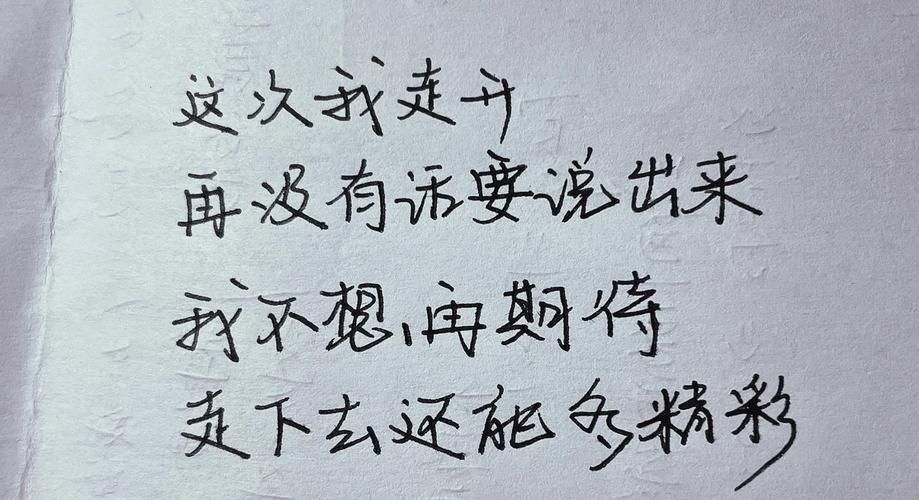 这次我走开
再没有话要说出来
我不想再期待
走下去还能多精彩